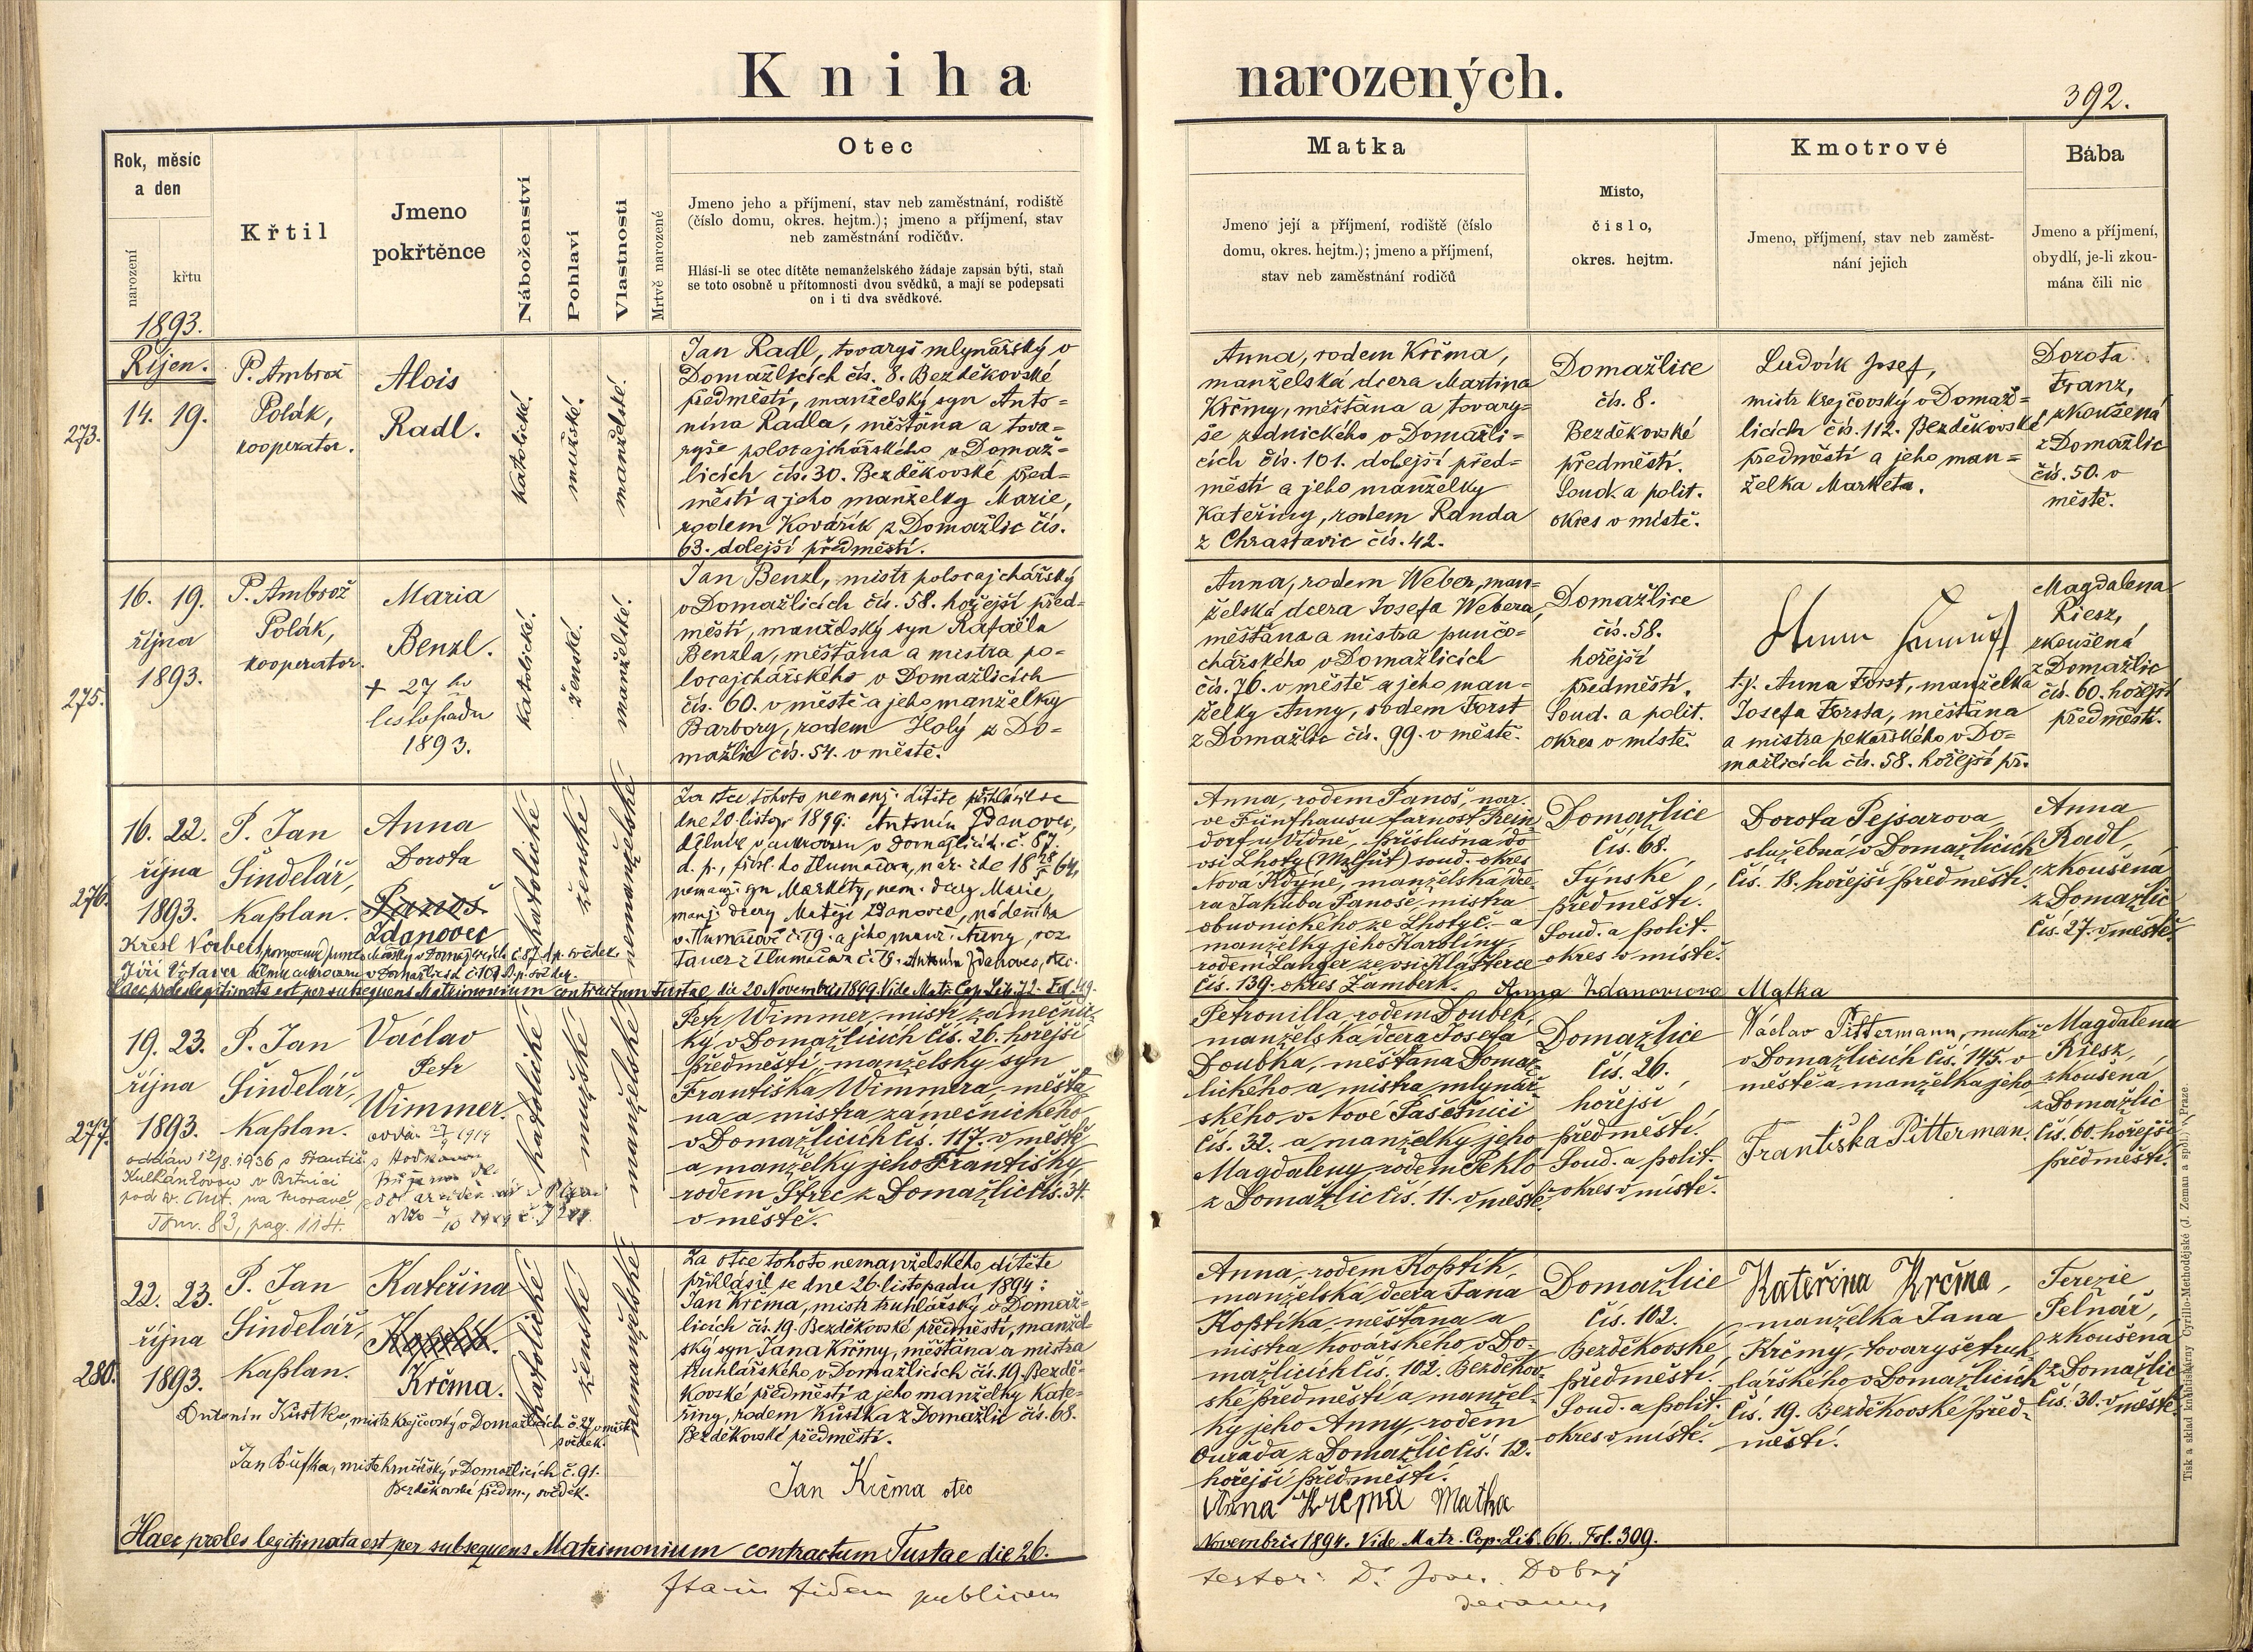 Kniha narozených.
392.
Rok, měsíc
a den
narození
křtu
Křtil
Jmeno
pokřtěnce
Náboženství
Pohlaví
Vlastnosti
Mrtvě narozené
Otec
Jmeno jeho a příjmení, stav neb zaměstnání, rodiště
(číslo domu, okres. hejtm.); jmeno a příjmení, stav
neb zaměstnání rodičův.
Hlásí-li se otec dítěte nemanželského žádaje zapsán býti, staň
se toto osobně u přítomnosti dvou svědků, a mají se podepsati
on i ti dva svědkové.
Matka
Jmeno její a příjmení, rodiště (číslo
domu, okres. hejtm.); jmeno a příjmení,
stav neb zaměstnání rodičů
Místo,
číslo,
okres. hejtm.
Kmotrové
Jmeno, příjmení, stav neb zaměst-
nání jejich
Bába
Jmeno a příjmení,
obydlí, je-li zkou-
mána čili nic
1893.
Říjen.
273.
14. 19.
P. Ambrož
Polák,
kooperator.
Alois
Radl.
katolické.
mužské.
manželské.
Jan Radl, tovaryš mlynářský v
Domažlicích čís. 8. Bezděkovské
předměstí, manželský syn Anto=
nína Radla, měšťana a tova=
ryše polocajchářského v Domaž=
licích čís. 30. Bezděkovské před=
městí a jeho manželky Marie,
rodem Kovářík z Domažlic čís.
63. dolejší předměstí.
Anna, rodem Krčma,
manželská dcera Martina
Krčmy, měšťana a tovary=
še zednického v Domažli=
cích čís. 101. dolejší před=
městí a jeho manželky
Kateřiny, rodem Randa
z Chrastavic čís. 42.
Domažlice
čís. 8.
Bezděkovské
předměstí.
Soud. a polit.
okres v místě.
Ludvík Josef,
mistr krejčovský v Domaž=
licích čís. 112. Bezděkovské
předměstí a jeho man=
želka Marketa.
Dorota
Franz,
zkoušená
z Domažlic
čís. 50. v
městě.
275.
16. 19.
října
1893.
P. Ambrož
Polák,
kooperator.
Maria
Benzl.
+ 27 ho
listopadu
1893.
katolické.
ženské.
manželské.
Jan Benzl, mistr polocajchářský
v Domažlicích čís. 58. hořejší před=
městí, manželský syn Rafaela
Benzla, měšťana a mistra po=
locajchářského v Domažlicích
čís. 60. v městě a jeho manželky
Barbory, rodem Holý z Do=
mažlic čís. 54. v městě.
Anna, rodem Weber, man=
želská dcera Josefa Webera,
měšťana a mistra punčo=
chářského v Domažlicích
čís. 76. v městě a jeho man=
želky Anny, rodem Forst
z Domažlic čís. 99. v městě.
Domažlice
čís. 58.
hořejší
předměstí.
Soud. a polit.
okres v místě.
t.j. Anna Forst, manželka
Josefa Forsta, měšťana
a mistra pekařského v Do=
mažlicích čís. 58. hořejší př.
Magdalena
Riesz,
zkoušená
z Domažlic
čís. 60. hořejší
předměstí.
276.
16. 22.
října
1893.
P. Jan
Šindelář,
kaplan.
Anna
Dorota
Panoš.
Zdanovec
katolické
ženské
nemanželské
Za otce tohoto nemanž. dítěte přihlásil se
dne 20 listop. 1899: Antonín Zdanovec,
dělník v cukrovaru v Domažlicích č. 87.
d. p., přísl. do Tlumačova, nar.
nemanž. syn Markéty, nem. dcery Marie,
manž. dcery Matěje Zdanovce, nádeníka
v Tlumačově č. 19. a jeho manž. Anny, roz.
Tauer z Tlumačova č. 15. Antonín Zdanovec, otec.
Křesl Norbert, v Domažlicích č. 87. d. p. svědek.
Jiří Votava dělník cukrovaru v Domažlicích č. 101 d. p. svědek.
Haec proles legitimata est per subsequens Matrimonium contractum Tustae die 20 Novembris 1899. Vide Matr. Cop. Lib. 72. Fol. 49.
Anna, rodem Panoš, nar.
ve Fünfhausu farnost Rein
dorf u Vídně, příslušná do
vsi Lhoty (Malhút) soud. okres
Nová Kdyně, manželská dce-
ra Jakuba Panoše, mistra
obuvnického ze Lhoty č. - a
manželky jeho Karolíny,
rodem Langer ze vsi Klášterce
čís. 139. okres Žamberk.
Anna Zdanovcova Matka
Domažlice
čís. 68.
Týnské
předměstí.
Soud. a polit.
okres v místě.
Dorota Pejsarova
služebná v Domažlicích
čís. 18. hořejší předměstí.
Anna
Radl,
zkoušená
z Domažlic
čís. 27. v městě.
277.
19. 23.
října
1893.
P. Jan
Šindelář,
kaplan.
Václav
Petr
Wimmer.
oddán 12/8. 1936 s Františ.
v Brtnici
na Moravě
Tom. 83, pag. 114.
katolické
mužské
manželské
Petr Wimmer, mistr zámečnic-
ký v Domažlicích čís. 26. hořejší
předměstí, manželský syn
Františka Wimmera, měšťa-
na a mistra zámečnického
v Domažlicích čís. 117. v městě
a manželky jeho Františky
rodem Štrec z Domažlic čís. 34.
v městě.
Petronilla rodem Doubek,
manželská dcera Josefa
Doubka, měšťana Domaž-
lického a mistra mlynář-
ského v Nové Pasečnici
čís. 32. a manželky jeho
Magdaleny rodem Peklo
z Domažlic čís. 11. v městě.
Domažlice
čís. 26.
hořejší
předměstí.
Soud. a polit.
okres v místě.
Václav Pittermann, mukař
v Domažlicích čís. 145. v
městě a manželka jeho
Františka Pitterman.
Magdalena
Riesz,
zkoušená
z Domažlic
čís. 60. hořejší
předměstí.
280.
22. 23.
října
1893.
P. Jan
Šindelář,
kaplan.
Kateřina
Krčma.
katolické
ženské
nemanželské
Antonín Kůstka, mistr krejčovský v Domažlicích č. 27 v městě
svědek.
Jan Bufka, mistr hrnčířský v Domažlicích č. 91.
Bezděkovské předm., svědek.
Za otce tohoto nemanželského dítěte
přihlásil se dne 26. listopadu 1894:
Jan Krčma, mistr truhlářský v Domaž=
licích čís. 19. Bezděkovské předměstí, manžel-
ský syn Jana Krčmy, měšťana a mistra
truhlářského v Domažlicích čís. 19. Bezdě=
kovské předměstí a jeho manželky Kate=
řiny, rodem Kůstka z Domažlic čís. 68.
Bezděkovské předměstí.
Jan Krčma otec
Anna, rodem Koptik,
manželská dcera Jana
Koptíka, měšťana a
mistra kovářského v Do-
mažlicích čís. 102. Bezděkov-
ské předměstí a manžel-
ky jeho Anny, rodem
Ouřada z Domažlic čís. 12.
hořejší předměstí.
Anna Krčma Matka
Domažlice
čís. 102.
Bezděkovské
předměstí.
Soud. a polit.
okres v místě.
Kateřina Krčma,
manželka Jana
Krčmy, tovaryše truh-
lářského v Domažlicích
čís. 19. Bezděkovské před-
městí.
Terezie
Pelnář,
zkoušená
z Domažlic
čís. 30. v městě.
Haec proles legitimata est per subsequens Matrimonium contractum Tustae die 26.
Novembris 1894. Vide Matr. Cop. Lib. 66. Fol. 309.
Ita in fidem publicam
testor: Dobrý
decanus
Tisk a sklad knihtiskárny Cyrillo-Methodějské (J. Zeman a spol.) v Praze.